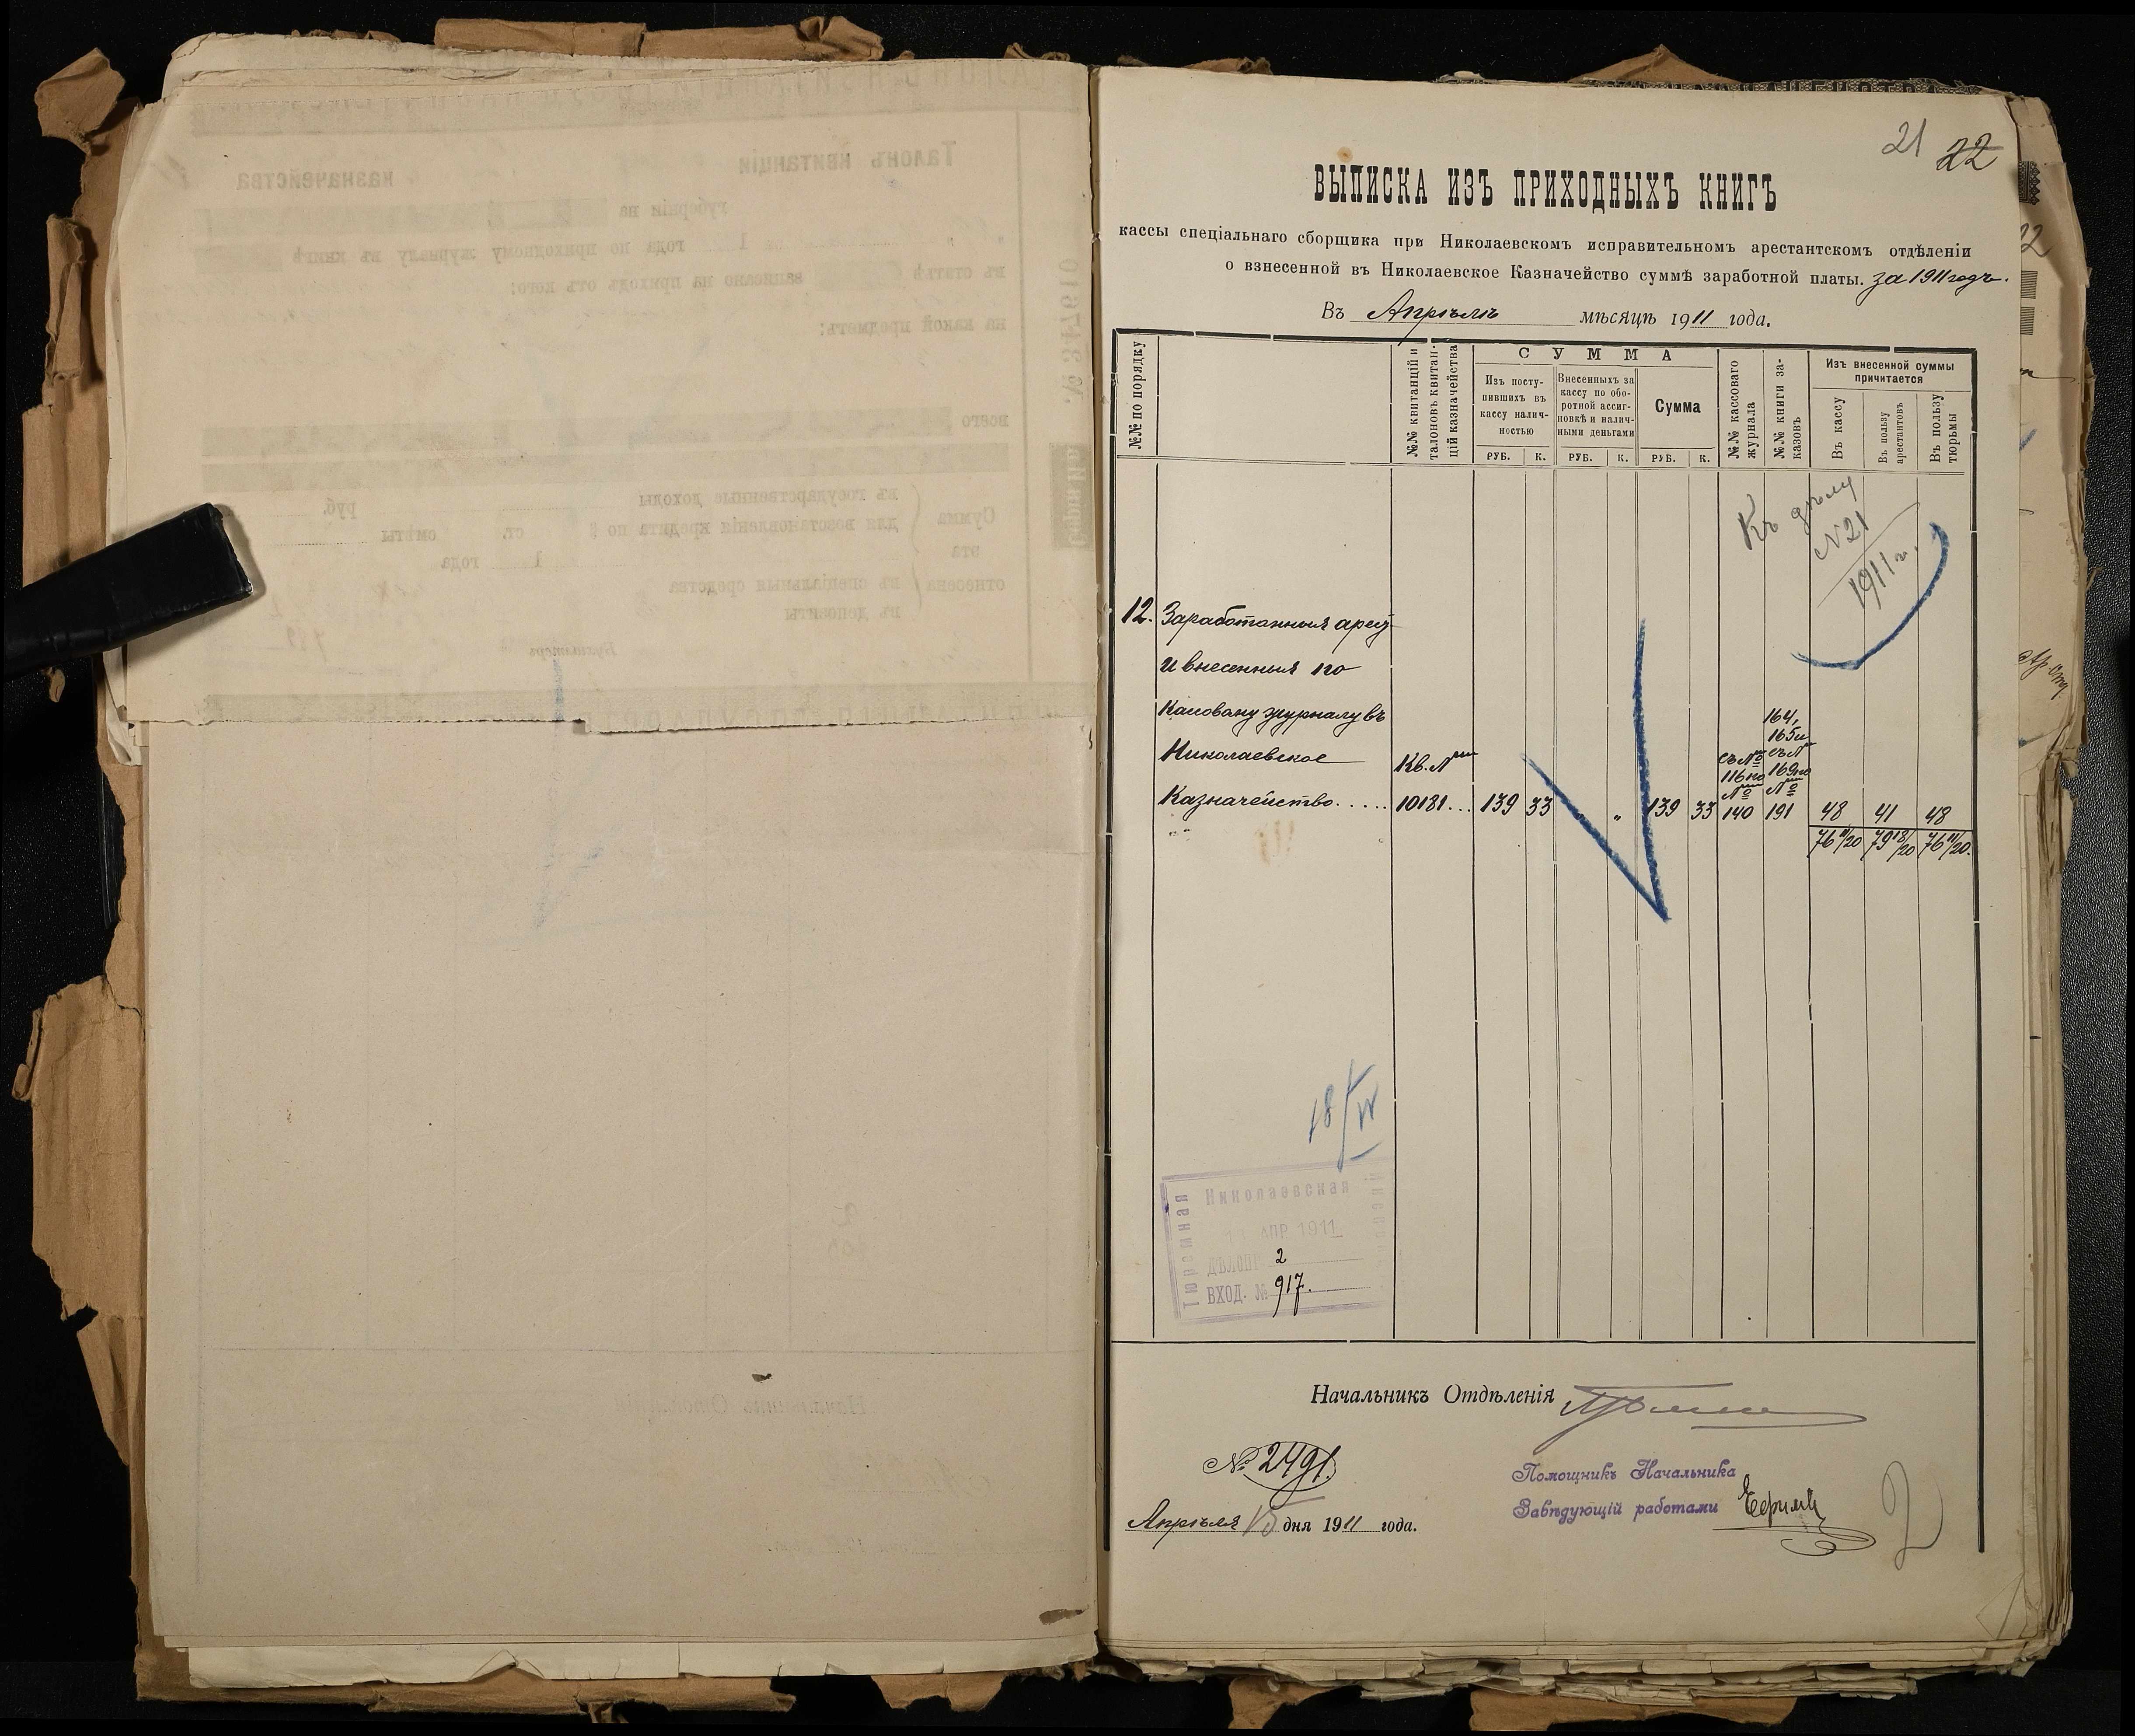 21 22
ВЫПИСКА ИЗЪ ПРИХОДНЫХЪ КНИГЪ
кассы спеціальнаго сборщика при Николаевскомъ исправительномъ арестантскомъ отдѣленіи
о взнесенной въ Николаевское Казначейство суммѣ заработной платы. за 1911 годъ.
Въ Апрѣлѣ мѣсяцѣ 1911 года.
№№ по порядку
№№ квитанцій и
талоновъ квитан-
цій казначейства
СУММА
Изъ посту-
пившихъ въ
кассу налич-
ностью
Внесенныхъ за
кассу по обо-
ротной ассиг-
новкѣ и налич-
ными деньгами
Сумма
РУБ. К. РУБ. К. РУБ. К.
№№ кассоваго
журнала
№№ книги за-
казовъ
Изъ внесенной суммы
причитается
Въ кассу
Въ пользу
арестантовъ
Въ пользу
тюрьмы
Къ дѣлу
N 21
1911 г.
12. Заработанныя арест
и внесенныя по
Кассовому журналу въ
Николаевское Кв. №
Казначейство..... 10181... 139 33 „ 139 33
съ №
116 по
№
140
164,
165 и
съ №
169 по
№
191
48 41 48
76 11/20 79 18/20 76 11/20.
18/IV
Николаевская
Тюремная
АПР 1911
ДѢЛОПР 2
ВХОД. № 917.
Начальникъ Отдѣленія
№ 2491.
Апрѣля 15 дня 1911 года.
Помощникъ Начальника
Завѣдующій работами
2
Талонъ квитанціи
казначейства
губерніи на
1 года по приходному журналу въ книгѣ
въ статьѣ записано на приходъ отъ кого:
на какой предметъ:
всего
Сумма
эта
отнесена
въ государственные доходы
для возстановленія кредита по §
ст.
смѣты
руб.
1 года
въ спеціальныя средства
въ депозиты
Бухгалтеръ